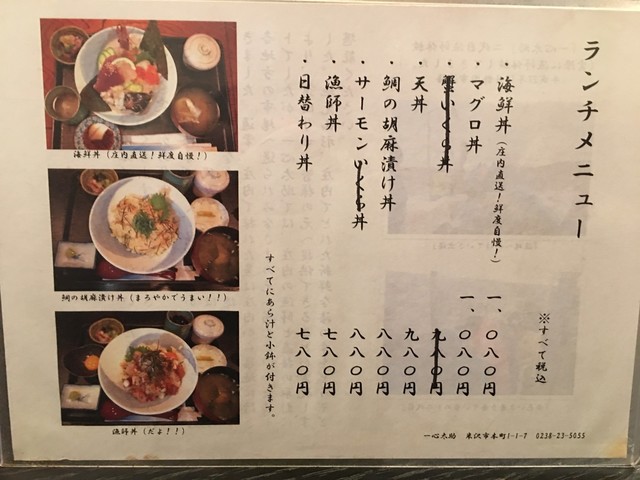 ランチメニュー
※すべて税込
・海鮮丼(庄内直送!鮮度自慢!) 一、〇八〇円
・マグロ丼 一、〇八〇円
・蟹いくら丼 九八〇円
・天丼 九八〇円
・鯛の胡麻漬け丼 八八〇円
・サーモンいくら丼 八八〇円
・漁師丼 七八〇円
・日替わり丼 七八〇円
すべてにあら汁と小鉢が付きます。
海鮮丼(庄内直送!鮮度自慢!)
鯛の胡麻漬け丼(まろやかでうまい!!)
漁師丼(だよ!!)
一心太助 米沢市本町1-1-7 0238-23-5055